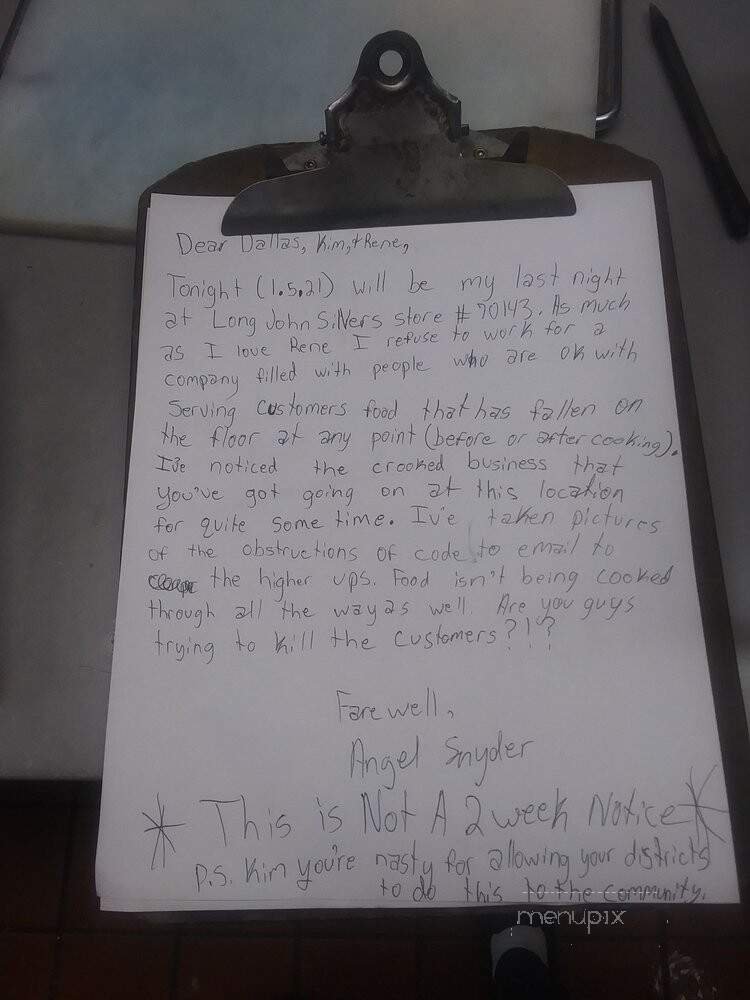 Dear Dallas, Kim, + Rene,
Tonight (1.5.21) will be my last night
at Long John Silvers store #70143. As much
as I love Rene I refuse to work for a
company filled with people who are ok with
Serving customers food that has fallen on
the floor at any point (before or after cooking).
I've noticed the crooked business that
you've got going on at this location
for quite some time. Iv'e taken pictures
of the obstructions of code to email to
the higher ups. Food isn't being cooked
through all the way as well. Are you guys
trying to kill the customers?!?
Farewell,
Angel Snyder
* This is Not A 2 week Notice *
P.S. Kim you're nasty for allowing your districts
to do this to the community.
menupix